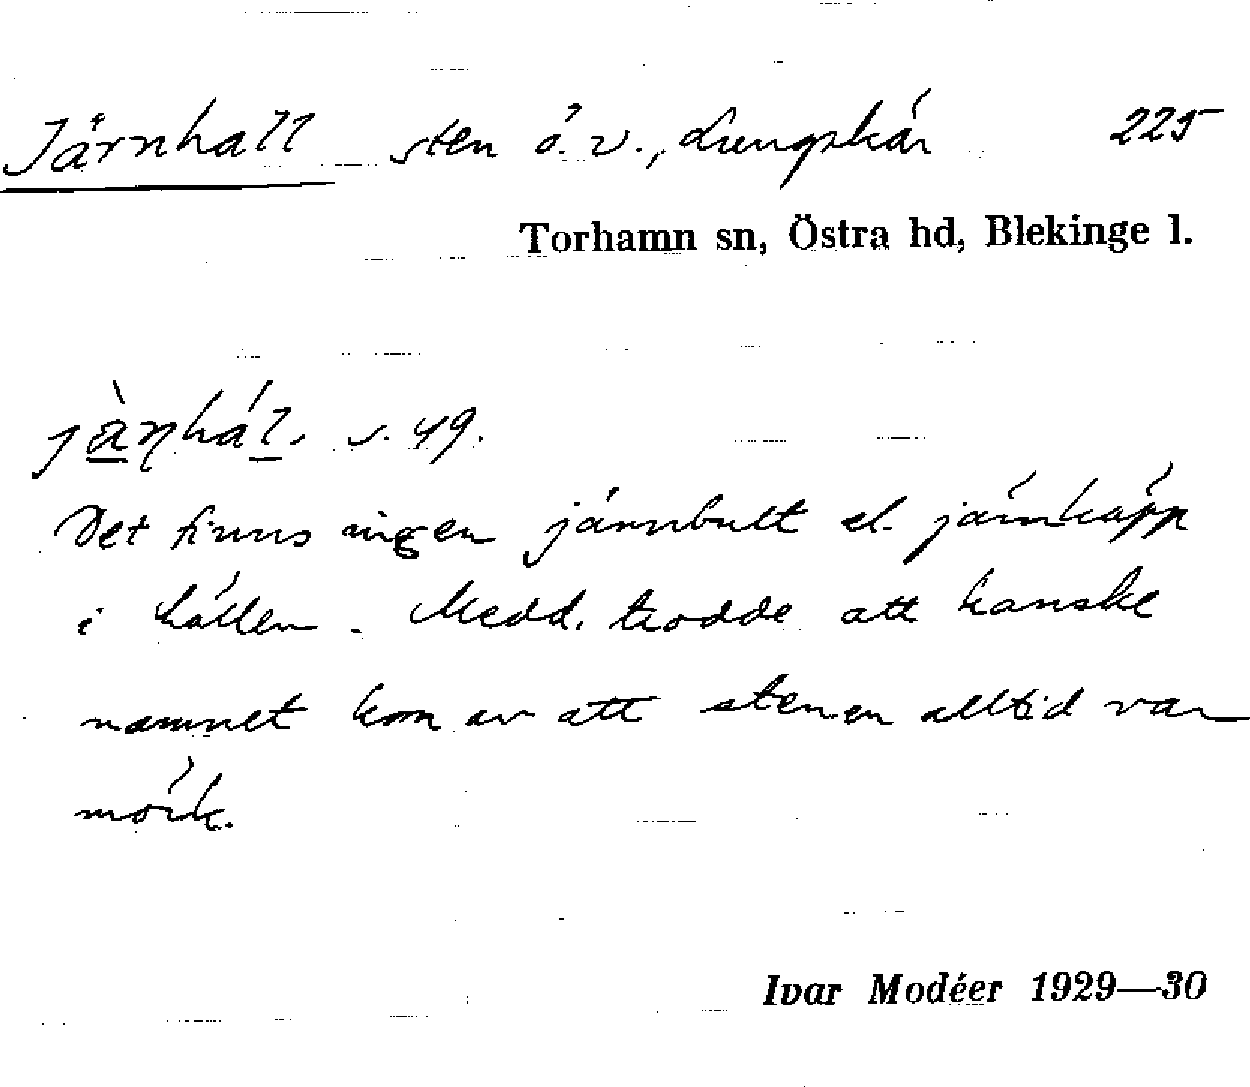 Järnhall sten ö. v., Lungskär 225
Torhamn sn, Östra hd, Blekinge l.
s. 49.
Det finns ingen järnbult el. järnkäpp
i hällen. Medd. trodde att kanske
namnet kom av att stenen alltid var
mörk.
Ivar Modéer 1929—30